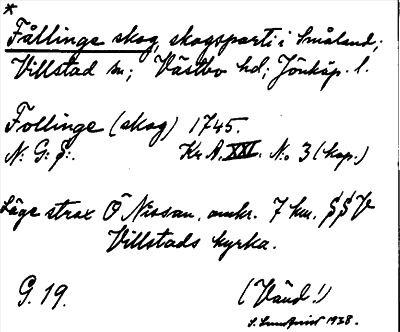 *
Fållinge skog, skogsparti i Småland;
Villstad sn; Västbo hd; Jönköp. l.
Follinge (skog) 1745.
N: G: S:. Kr. A. XXI. N:o 3 (kop.)
Läge strax Ö Nissan, omkr. 7 km. SSV
Villstads kyrka.
G. 19. (Vänd!)
S. Lundqvist 1928.